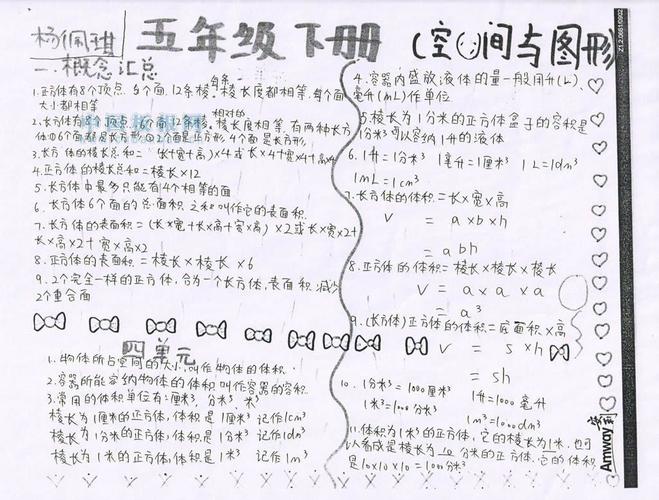 杨佩琪
五年级下册(空间与图形)
一.概念汇总
1.正方体有8个顶点.6个面.12条棱.每条棱长度都相等.每个面
大小都相等
2.长方体有8个顶点.6个面.12条棱.相对的棱长度相等.有两种长方
体①6个面都是长方形②2个面是正方形.4个面是长方形.
3.长方体的棱长总和=(长+宽+高)×4或长×4+宽×4+高×4
4.正方体的棱长总和=棱长×12
5.长方体中最多只能有4个相等的面
6.长方体6个面的总面积之和叫作它的表面积.
7.长方体的表面积=(长×宽+长×高+宽×高)×2或长×宽×2+
长×高×2+宽×高×2
8.正方体的表面积=棱长×棱长×6
9.2个完全一样的正方体,合为一个长方体,表面积减少
2个重合面
四单元
1.物体所占空间的大小,叫作物体的体积.
2.容器所能容纳物体的体积叫作容器的容积.
3.常用的体积单位有:厘米³,分米³,米³
棱长为1厘米的正方体,体积是1厘米³ 记作1cm³
棱长为1分米的正方体,体积是1分米³ 记作1dm³
棱长为1米的正方体,体积是1米³ 记作1m³
4.容器内盛放液体的量一般用升(L)、
毫升(mL)作单位
5.棱长为1分米的正方体盒子的容积是
1分米³可以容纳1升的液体
6.1升=1分米³ 1毫升=1厘米³ 1L=1dm³
1mL=1cm³
7.长方体的体积=长×宽×高
V = a×b×h
= abh
8.正方体的体积=棱长×棱长×棱长
V = a×a×a
= a³
9.(长方体)正方体的体积=底面积×高
V = s×h
= sh
10. 1分米³=1000厘米³ 1升=1000毫升
1米³=1000分米³ 1m³=1000dm³
11.体积为1米³的正方体,它的棱长为1米.也可
以看成是棱长为10分米的正方体.它的体积
是10×10×10=1000分米³
安利
Amway